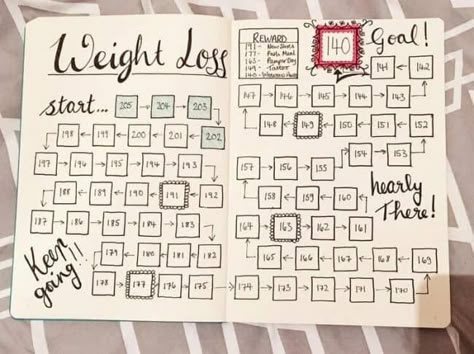 Weight Loss
start... 205 204 203
198 199 200 201 202
197 196 195 194 193
188 189 190 191 192
187 186 185 184 183
Keep going!!
179 180 181 182
178 177 176 175
REWARD
191 - New
177 - Meal
163 - Pamper Day
149 -
140 - Weekend Away
140 Goal!
141 142
147 146 145 144 143
148 149 150 151 152
154 153
157 156 155
158 159 160
nearly
There!
164 163 162 161
165 166 167 168 169
174 173 172 171 170